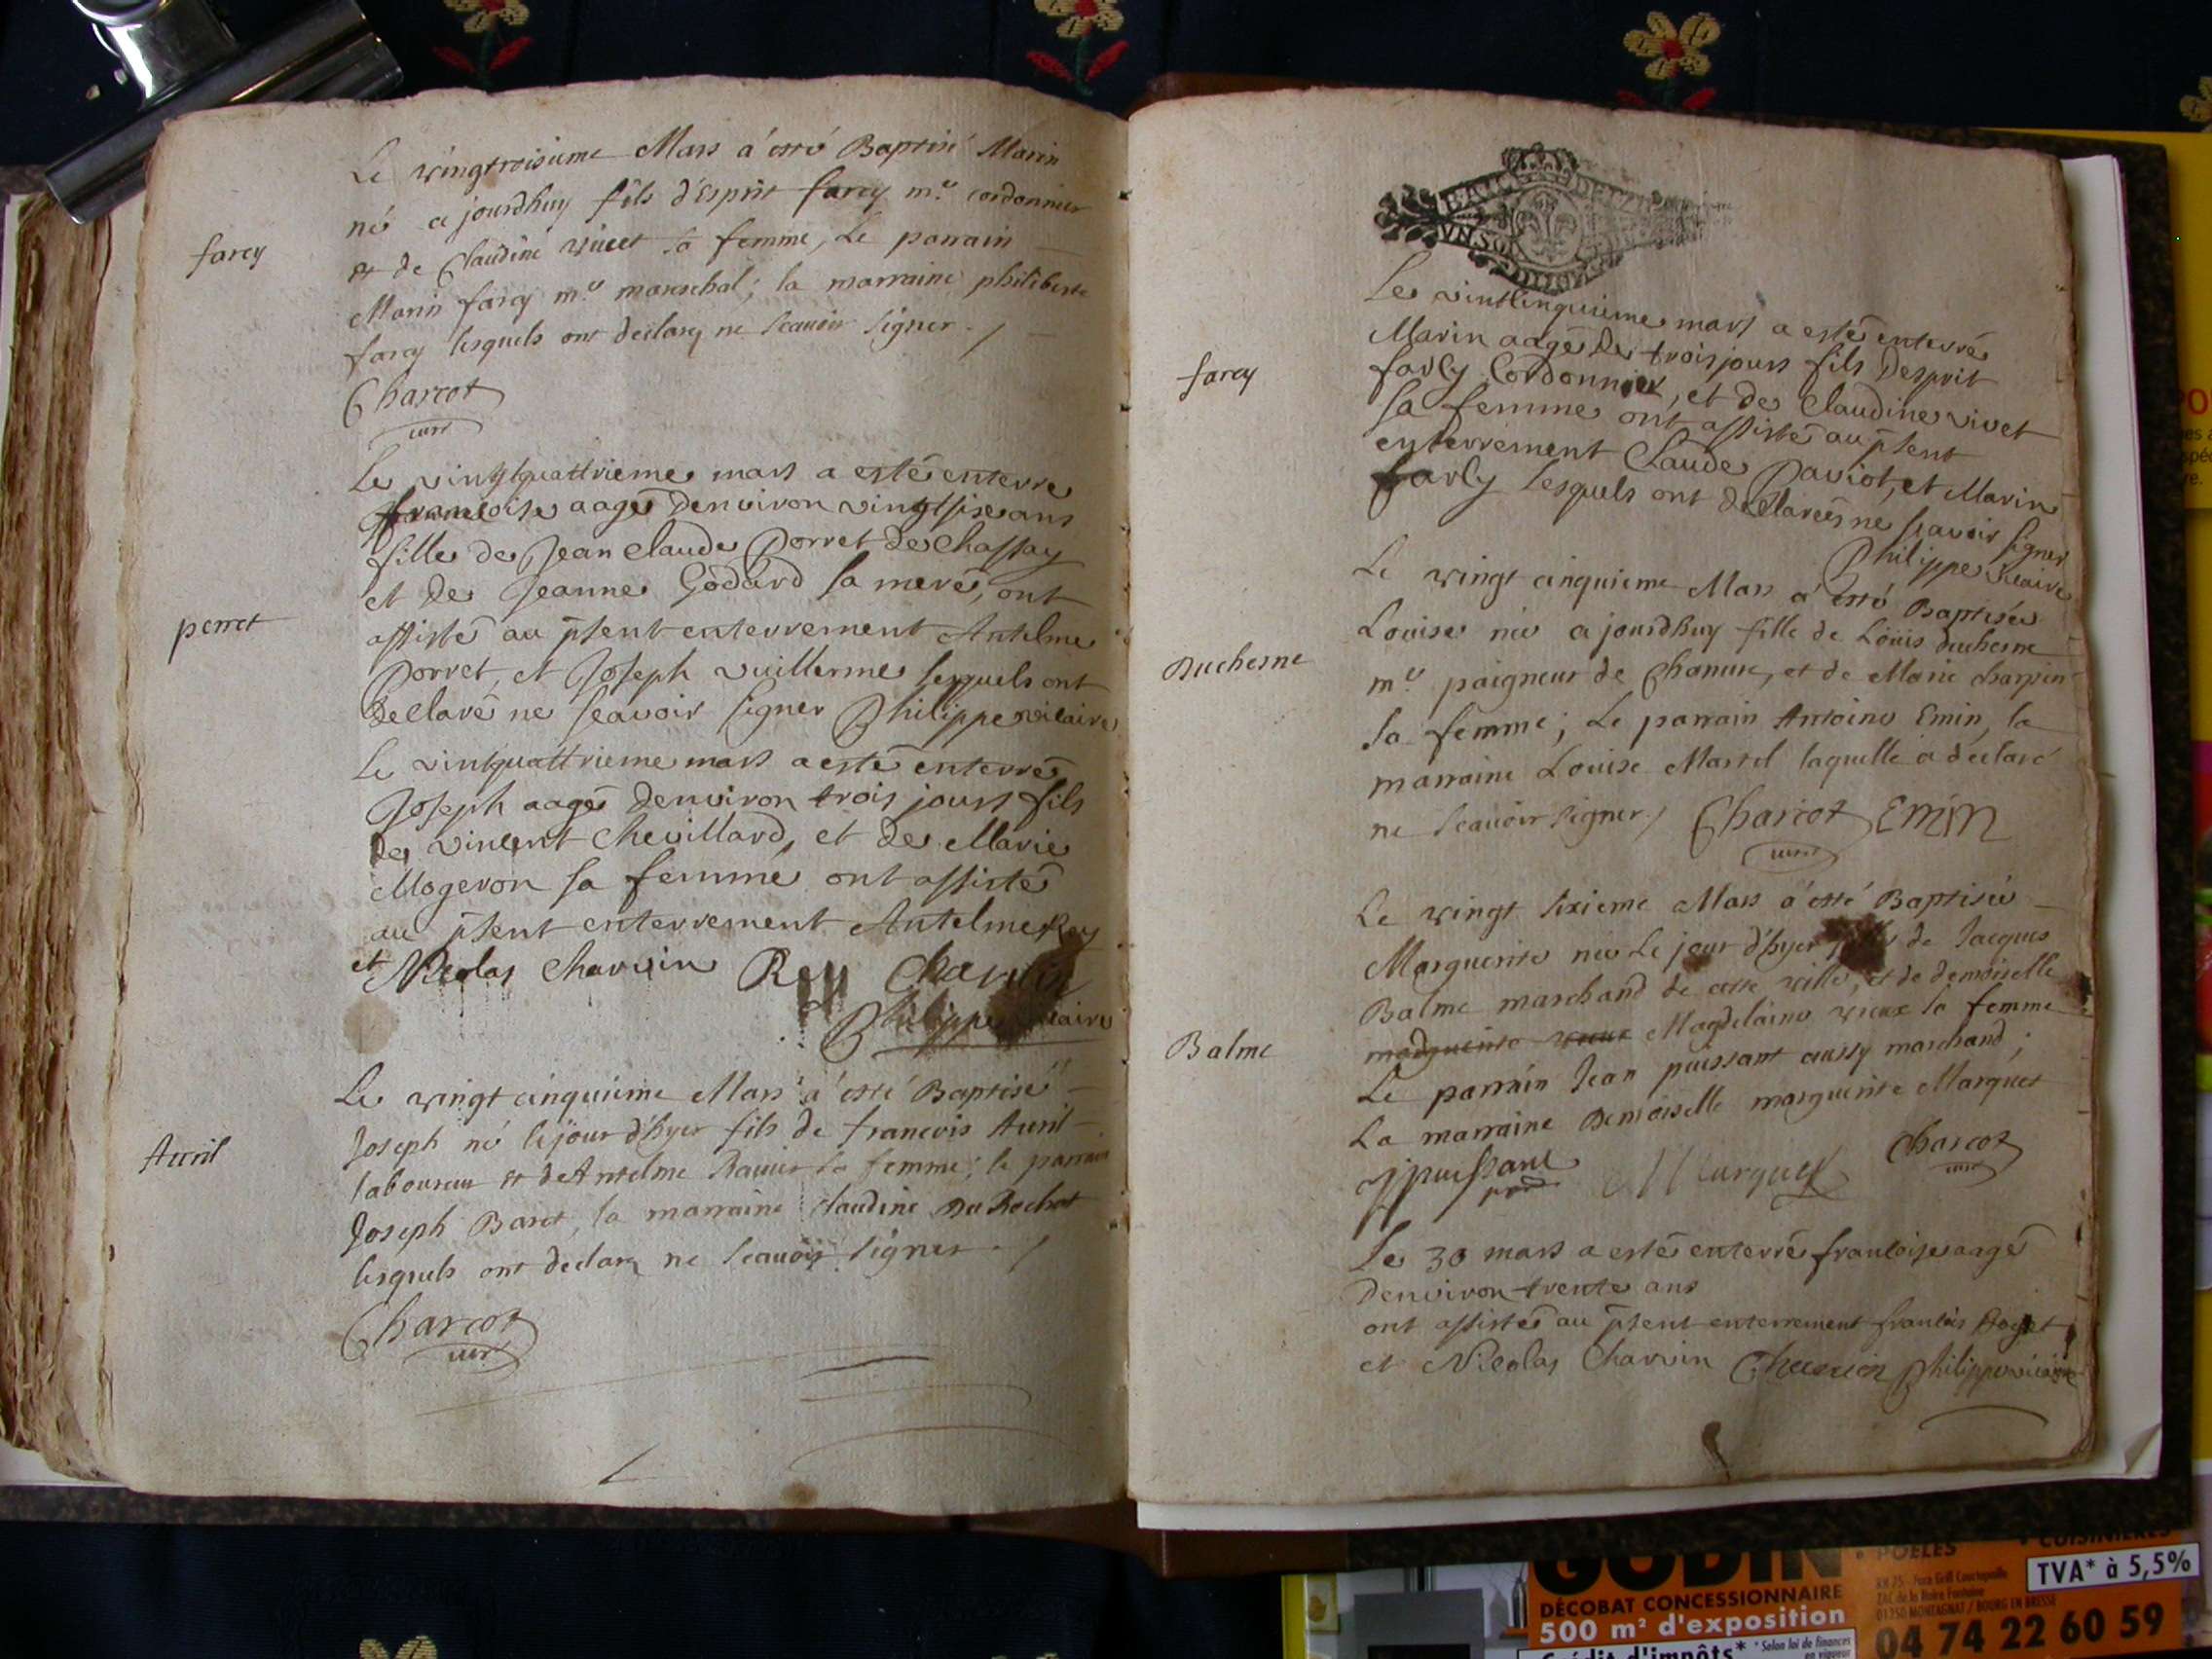 Le vingtroisieme Mars a esté Baptisé Marin
né ajourdhuy fils d'Esprit farcy m.e cordonnier
farcy
et de Claudine vivet sa femme, Le parrain
Marin farcy m.e mareschal; la marraine philiberte
farcy lesquels ont declarez ne scavoir signer.
Charcot
curé
Le vingtquattrieme mars a esté enterre
francoise aagé denviron vingtsix ans
fille de Jean Claude Porret de Chassay
et de Jeanne Godard sa mere, ont
perret
assisté au p̃sent enterrement Antelme
Porret, et Joseph vuillerme lesquels ont
declaré ne scavoir signer Philippe vicaire
Le vintquattrieme mars a esté enterré
Joseph aagé denviron trois jours fils
de vincent Chevillard, et de Marie
Mogeron sa femme ont assisté
au p̃sent enterrement Antelme Rey
et Nicolas Charvin Rey Charvin
Philippe vicaire
Le vingt cinquieme Mars a esté Baptisé
Auril
Joseph né lejour d'hyer fils de francois Auril
laboureur et de Antelme Ravier sa femme; le parrain
Joseph Baret, la marraine Claudine Du Rochat
lesquels ont declarez ne scavoir signer.
Charcot
curé
Le vintcinquieme mars a esté enterré
Marin aagé de trois jours fils desprit
farcy
farcy Cordonnier, et de Claudine vivet
sa femme ont assisté au p̃sent
enterrement Claude Paviot, et Marin
farcy lesquels ont declarées ne scavoir signer
Philippe vicaire
Le vingt cinquieme Mars a esté Baptisée
Louise née ajourdhuy fille de Louis duchesne
Duchesne
m.e paigneur de Chanvre, et de Marie charpin
sa femme; Le parrain Antoine Emin, la
marraine Louise Martel laquelle a declaré
ne scavoir signer Charcot Emin
curé
Le vingt sixieme Mars a esté Baptisée
Marguerite née Le jour d'hyer de Jacques
Balme marchand de cette ville, et de demoiselle
Balme
marguerite vieux Magdelaine vieux sa femme
Le parrain Jean puissant aussy marchand;
La marraine Demoiselle marguerite Marquet
Jpuissant Marquet Charcot
curé
Le 30 mars a esté enterré francoise aagé
denviron trente ans
ont assisté au p̃sent enterrement francois
et Nicolas Charvin Charvin Philippe vicaire
GODIN
DÉCOBAT CONCESSIONNAIRE
500 m² d'exposition
Crédit d'impôts*
* Selon loi de finances
en vigueur
• POÊLES
• CUISINIÈRES
TVA* à 5,5%
01250 MONTAGNAT / BOURG EN BRESSE
04 74 22 60 59